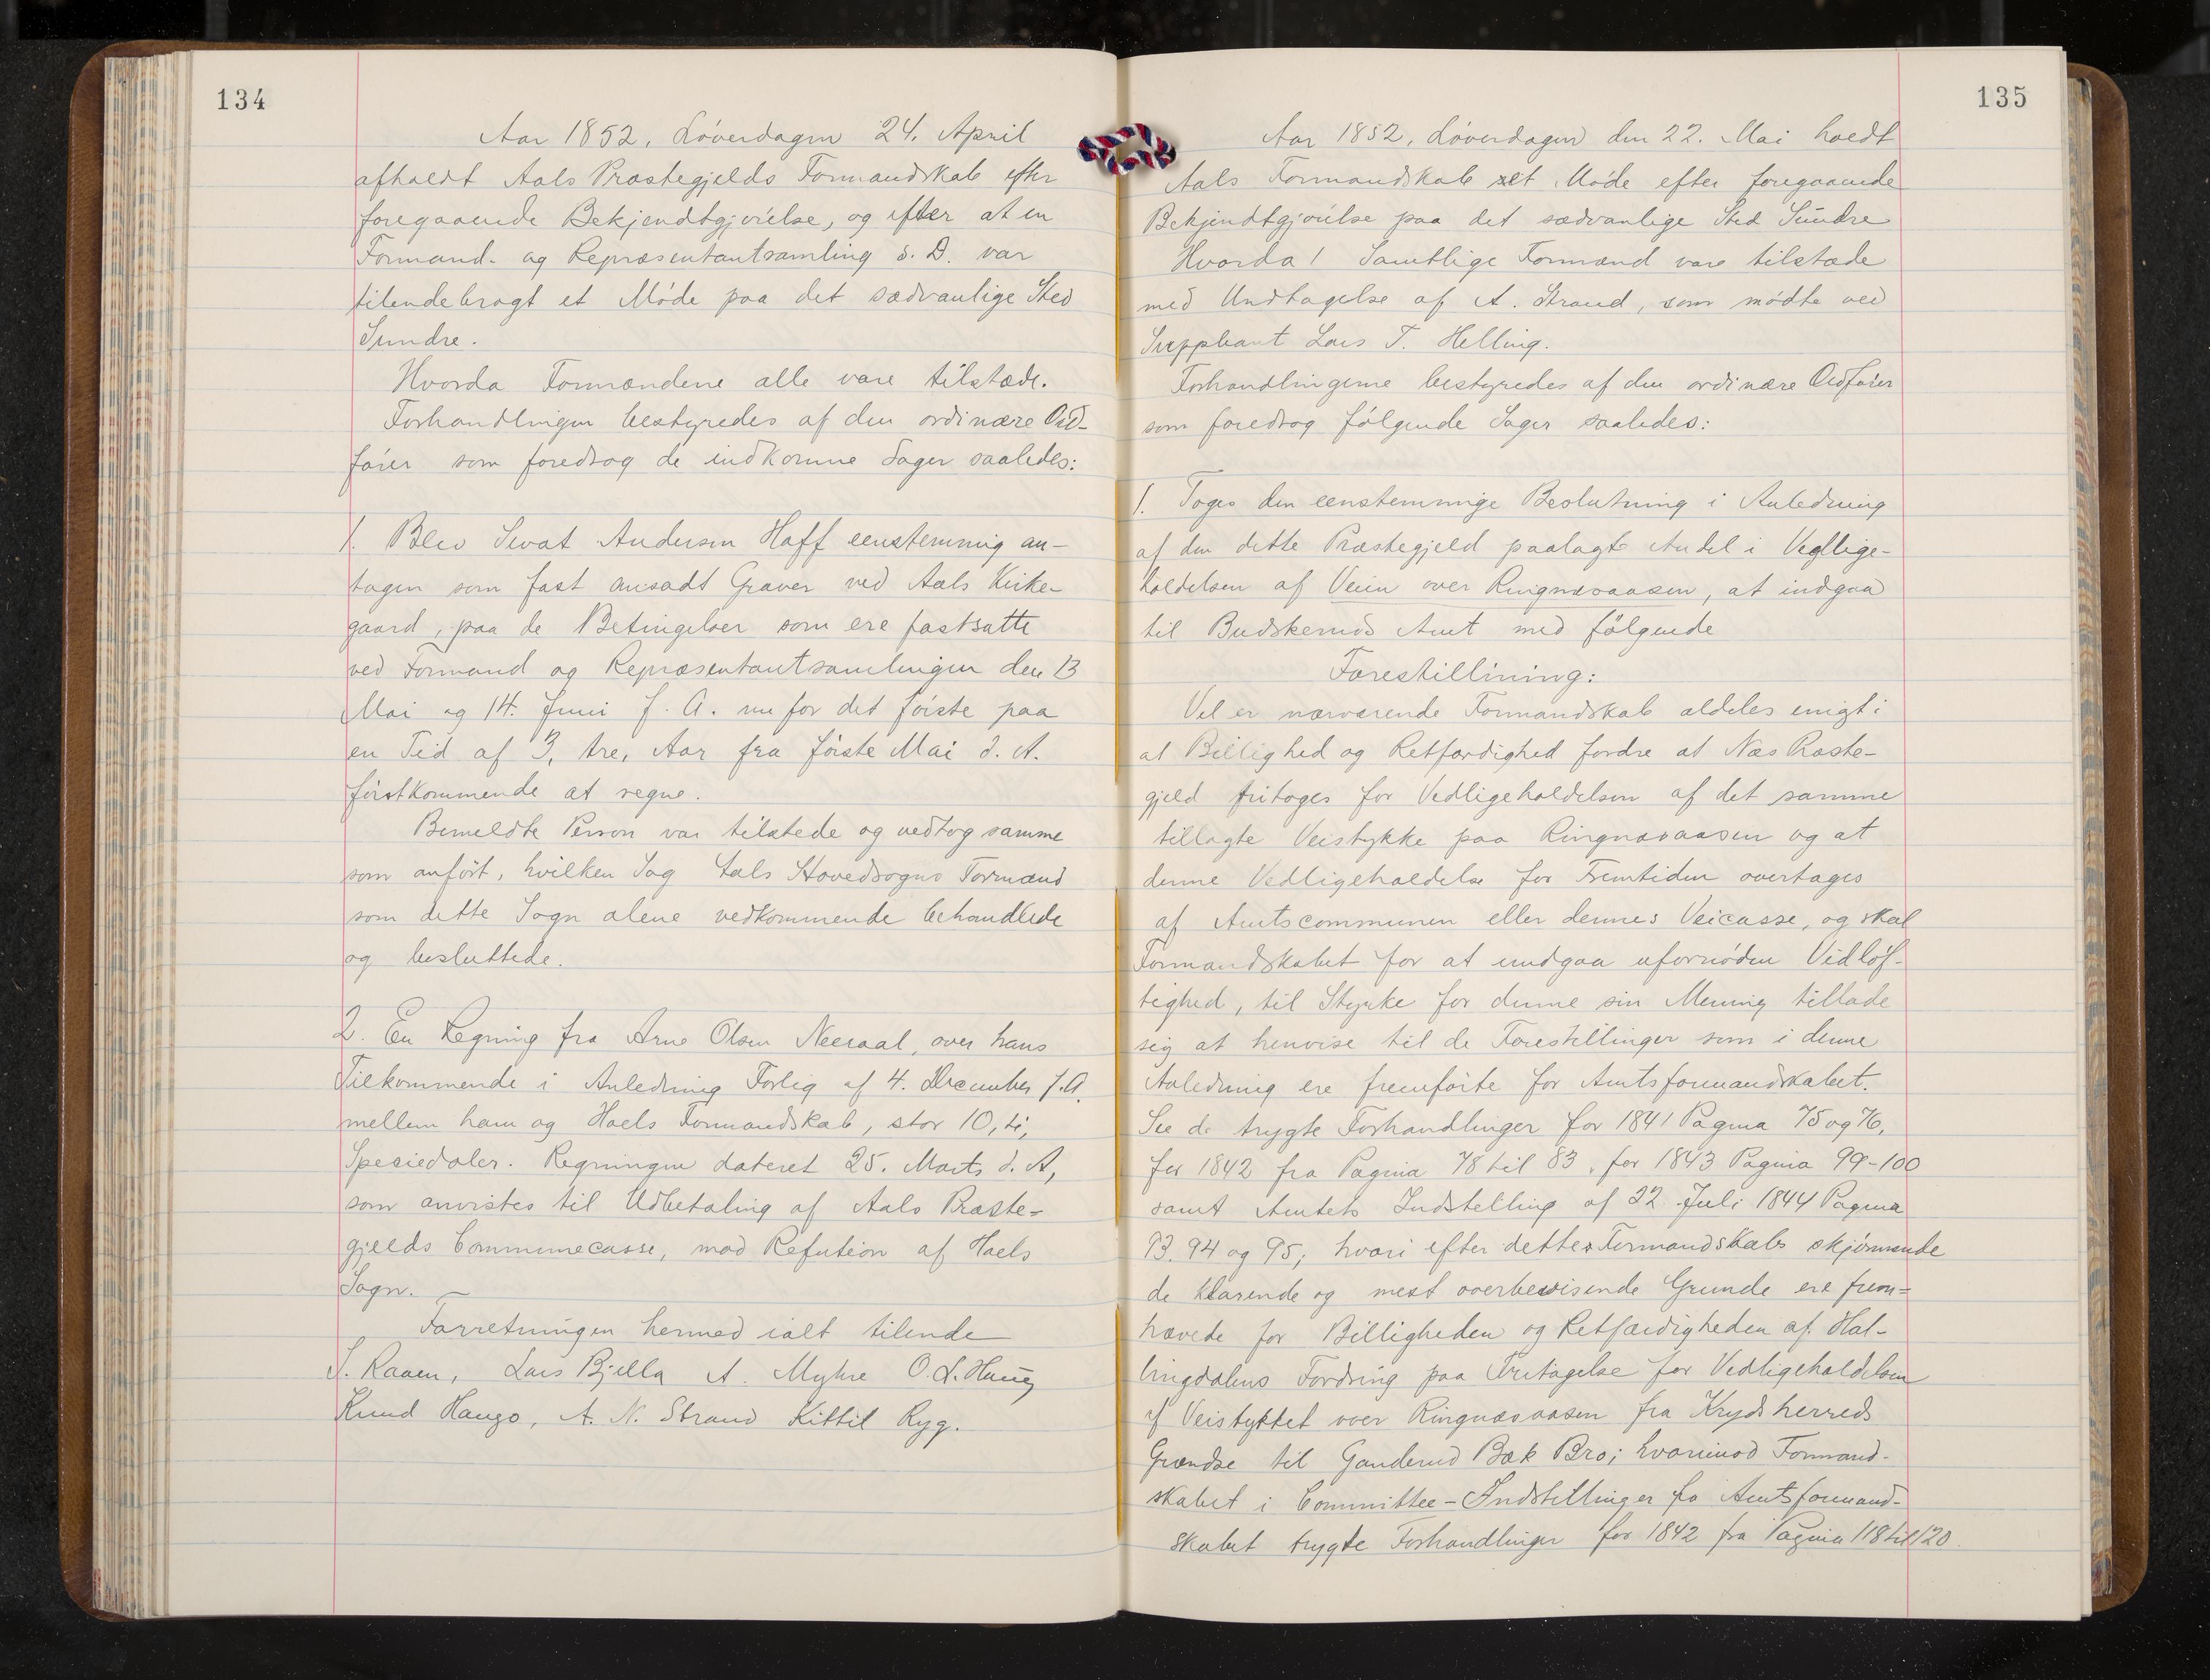 134
Aar 1852, Løverdagen 24. April
afholdt Aals Præstegjelds Formandskab efter
foregaaende Bekjendtgjørelse, og efter at en
Formand- og Repræsentantsamling s. D. var
tilendebragt et Møde paa det sædvanlige Sted
Sundre.
Hvorda Formændene alle vare tilstæde.
Forhandlingen bestyredes af den ordinære Ord-
fører som foredrog de indkomne Sager saaledes:
1. Blev Sivat Andersen Haff eenstemmig an-
tagen som fast ansadt Graver ved Aals Kirke-
gaard, paa de Betingelser som ere fastsatte
ved Formand og Repræsentantsamlingen den 13
Mai og 14. Juni f. A. nu for det første paa
en Tid af 3, tre, Aar fra første Mai d. A.
førstkommende at regne.
Bemeldte Person var tilstede og vedtog samme
som anført, hvilken Sag Aals Hovedsogns Formænd
som dette Sogn alene vedkommende behandlede
og besluttede.
2. En Regning fra Arne Olsen Neeraal, over hans
Tilkommende i Anledning Forlig af 4. December f. A.
mellem ham og Hols Formandskab, stor 10, ti,
Speciedaler. Regningen dateret 25. Marts d. A,
som anvistes til Udbetaling af Aals Præste-
gjelds Communecasse, mod Refution af Hols
Sogn.
Forretningen hermed ialt tilende
S. Raaen, Lars Bjella A. Myhre O. L. Haug
Knud Haugo, A. N. Strand Kittil Ryg.
135
Aar 1852, Løverdagen den 22. Mai holdt
Aals Formandskab et Møde efter foregaaende
Bekjendtgjørelse paa det sædvanlige Sted Sundre
Hvorda! Samtlige Formænd vare tilstæde
med Undtagelse af A. Strand, som mødte ved
Suppleant Lars T. Helling.
Forhandlingerne bestyredes af den ordinære Ordfører
som foredrog følgende Sager saaledes:
1. Toges den eenstemmige Beslutning i Anledning
af den dette Præstegjeld paalagte Andel i Vedlige-
holdelsen af Veien over Ringnæsaasen, at indgaa
til Budskeruds Amt med følgende
Forestillining:
Vel er nærværende Formandskab aldeles enigt i
at Billighed og Retfærdighed fordre at Næs Præste-
gjeld fritages for Vedligeholdelsen af det samme
tillagte Veistykke paa Ringnæsaasen og at
denne Vedligeholdelse for Fremtiden overtages
af Amtscommunen eller dennes Veicasse, og skal
Formandskabet for at undgaa ufornøden Vidløf-
tighed, til Styrke for denne sin Mening tillade
sig at henvise til de Forestillinger som i denne
Anledning ere fremførte for Amtsformandskabet.
See de trygte Forhandlinger for 1841 Pagina 75 og 76,
for 1842 fra Pagina 78 til 83, for 1843 Pagina 99-100
samt Amtets Indstilling af 22 Juli 1844 Pagina
93. 94 og 95; hvori efter dettes Formandskabs skjønnende
de klarende og mest overbevisende Grunde ere frem-
hævede for Billigheden og Retfærdigheden af Hal-
lingdalens Fordring paa Fritagelse for Vedligeholdelsen
af Veistykket over Ringnæsaasen fra Krydsherreds
Grændse til Ganderud Bæk Bro; hvorimod Formand-
skabet i Committee-Indstillinger fo Amtsformand-
skabet trygte Forhandlinger for 1842 fra Pagina 118 til 120